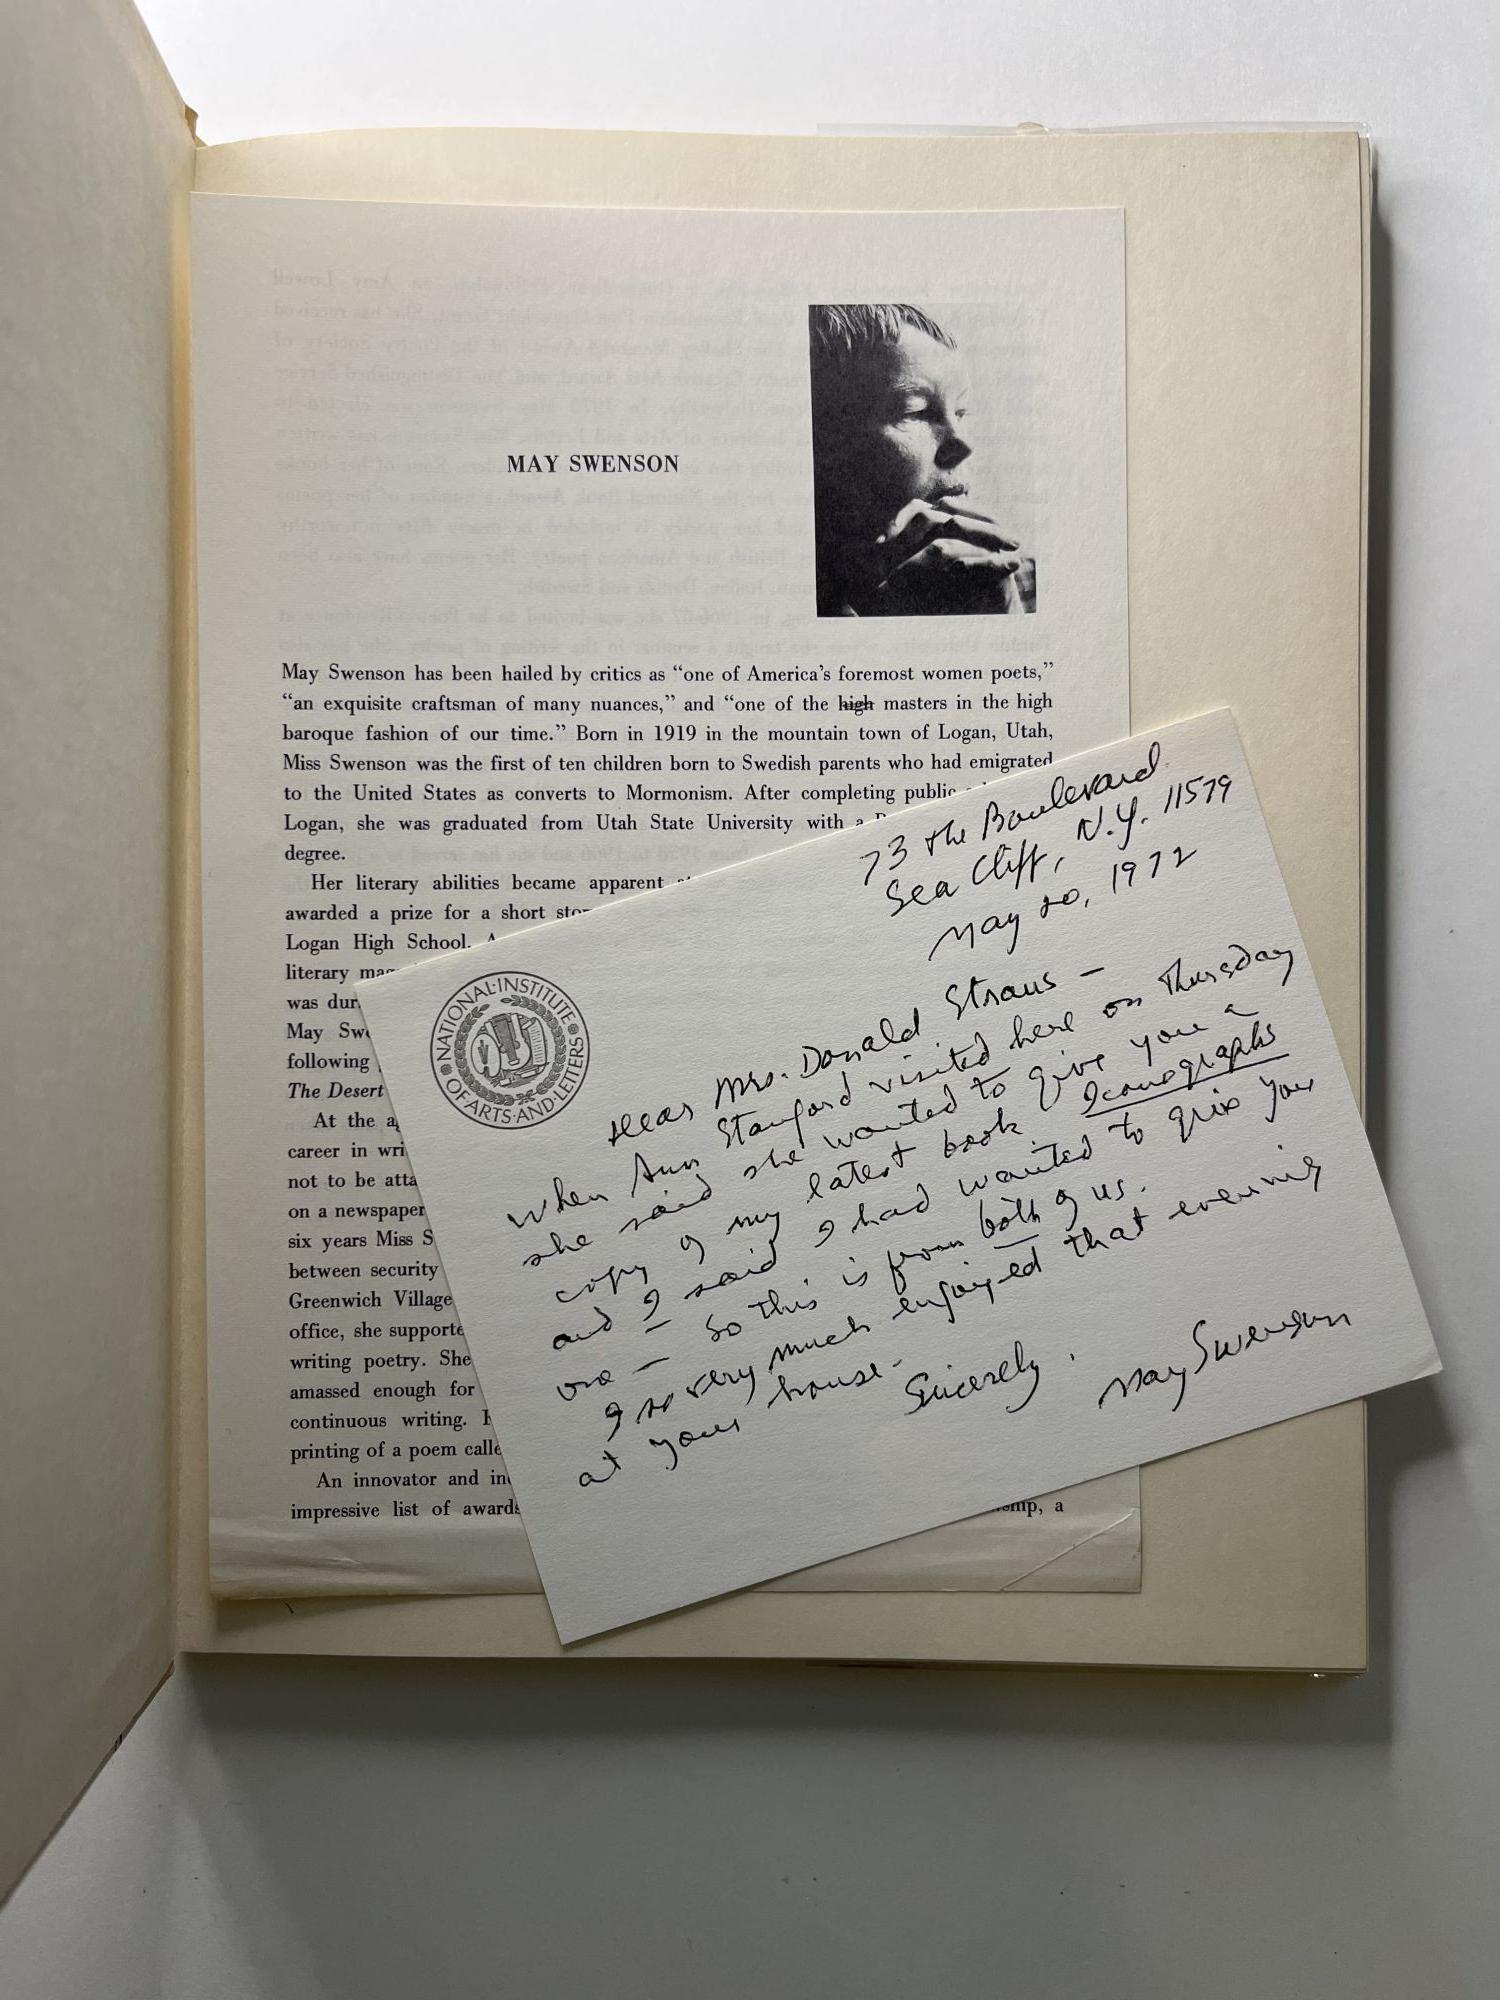 MAY SWENSON
May Swenson has been hailed by critics as “one of America’s foremost women poets,”
“an exquisite craftsman of many nuances,” and “one of the high masters in the high
baroque fashion of our time.” Born in 1919 in the mountain town of Logan, Utah,
Miss Swenson was the first of ten children born to Swedish parents who had emigrated
to the United States as converts to Mormonism. After completing public
Logan, she was graduated from Utah State University with a
degree.
Her literary abilities became apparent
awarded a prize for a short
Logan High School.
literary
was
May
following
The Desert
At the
career in
not to be
on a newspaper
six years Miss S
between security
Greenwich Village
office, she
writing poetry. She
amassed enough for
continuous writing.
printing of a poem
An innovator and
impressive list of awards
a
73 the Boulevard
Sea Cliff, N.Y. 11579
May 20, 1972
NATIONAL·INSTITUTE
·OF·ARTS·AND·LETTERS·
Dear Mrs. Donald Straus —
When Ann Stanford visited here on Thursday
she said she wanted to give you a
copy of my latest book Iconographs
and I said I had wanted to give you
one — So this is from both of us.
I so very much enjoyed that evening
at your house.
Sincerely,
May Swenson